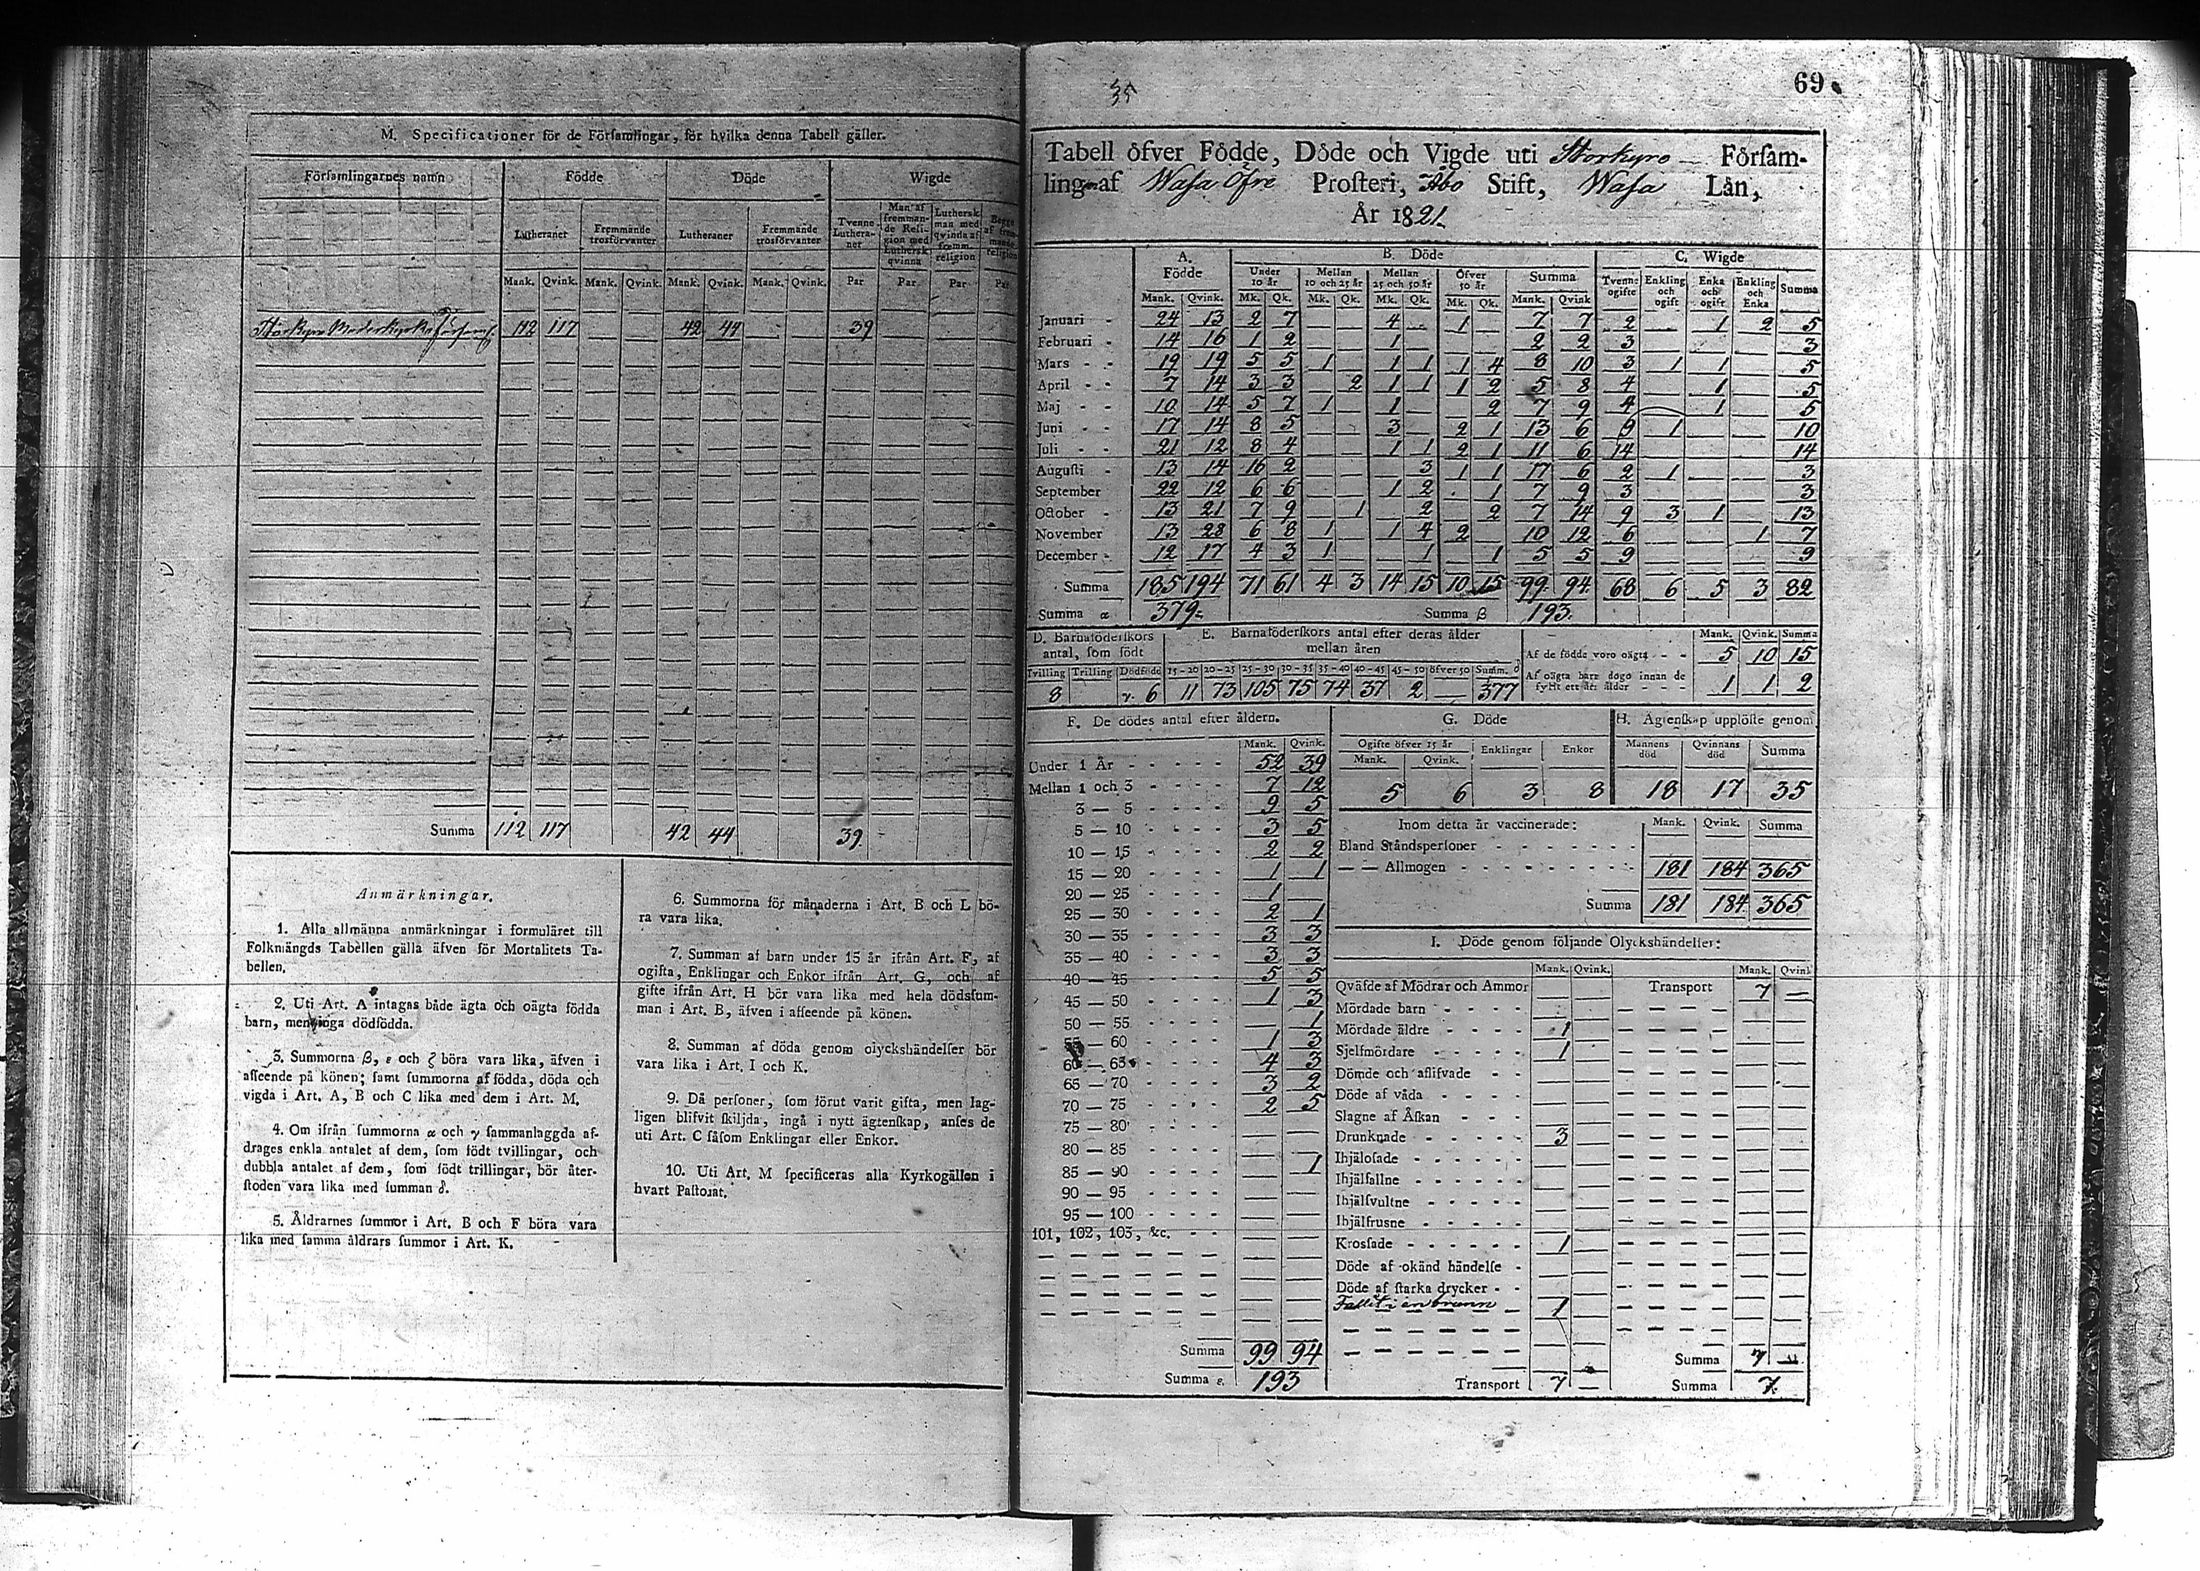 M. Specificationer för de Församlingar, för hvilka denna Tabell gäller.
Församlingarnes namn Födde Döde Wigde
Lutheraner Fremmande trosförvanter Lutheraner Fremmande trosförvanter Tvenne Lutheraner Man af fremmande Religion med Luthersk qvinna Luthersk man med qvinda af fremm. religion
Mank. Qvink. Mank. Qvink. Mank. Qvink. Mank. Qvink. Par Par Par Par
Storkyro Moderkyrko 112 117 42 44 39
Summa 112 117 42 44 39
Anmärkningar.
1. Alla allmänna anmärkningar i formuläret till
Folkmängds Tabellen gälla äfven för Mortalitets Ta-
bellen.
2. Uti Art. A intagas både ägta och oägta födda
barn, men inga dödfödda.
3. Summorna β, ε och ζ böra vara lika, äfven i
afseende på könen; samt summorna af födda, döda och
vigda i Art. A, B och C lika med dem i Art. M.
4. Om ifrån summorna α och γ sammanlaggda af-
drages enkla antalet af dem, som födt tvillingar, och
dubbla antalet af dem, som födt trillingar, bör åter-
stoden vara lika med summan δ.
5. Åldrarnes summor i Art. B och F böra vara
lika med samma åldrars summor i Art. K.
6. Summorna för månaderna i Art. B och L bö-
ra vara lika.
7. Summan af barn under 15 år ifrån Art. F, af
ogifta, Enklingar och Enkor ifrån Art. G, och af
gifte ifrån Art. H bör vara lika med hela dödssum-
man i Art. B, äfven i afseende på könen.
8. Summan af döda genom olyckshändelser bör
vara lika i Art. I och K.
9. Då personer, som förut varit gifta, men lag-
ligen blifvit skiljda, ingå i nytt ägtenskap, anses de
uti Art. C såsom Enklingar eller Enkor.
10. Uti Art. M specificeras alla Kyrkogällen i
hvart Pastorat.
35
69
Tabell öfver Födde, Döde och Vigde uti Storkyro Försam-
ling af Wasa Öfre Prosteri, Åbo Stift, Wasa Län,
År 1821
A. Födde B. Döde C. Wigde
Under 10 år Mellan 10 och 25 år Mellan 25 och 50 år Öfver 50 år Summa Tvenne ogifte Enkling och ogift Enka och ogift Enkling och Enka Summa
Mank. Qvink. Mk. Qk. Mk. Qk. Mk. Qk. Mk. Qk. Mank. Qvink
Januari 24 13 2 7 4 1 7 7 2 1 2 5
Februari 14 16 1 2 1 2 2 3 3
Mars 19 19 5 5 1 1 1 1 4 8 10 3 1 1 5
April 7 14 3 3 2 1 1 1 2 5 8 4 1 5
Maj 10 14 5 7 1 1 2 7 9 4 1 5
Juni 17 14 8 5 3 2 1 13 6 9 1 10
Juli 21 12 8 4 1 1 2 1 11 6 14 14
Augusti 13 14 16 2 3 1 1 17 6 2 1 3
September 22 12 6 6 1 2 1 7 9 3 3
October 13 21 7 9 1 2 2 7 14 9 3 1 13
November 13 28 6 8 1 1 4 2 10 12 6 1 7
December 12 17 4 3 1 1 1 5 5 9 9
Summa 185 194 71 61 4 3 14 15 10 15 99 94 68 6 5 3 82
Summa α 379 Summa β 193.
D. Barnaföderskors antal, som födt E. Barnaföderskors antal efter deras ålder mellan åren Mank. Qvink. Summa
Tvilling Trilling Dödfödde 15-20 20-25 25-30 30-35 35-40 40-45 45-50 öfver 50 Summ. δ
8 γ. 6 11 73 105 75 74 37 2 — 377
Af de födde voro oägta 5 10 15
Af oägta barn dogo innan de fyllt ett års ålder 1 1 2
F. De dödes antal efter åldern.
Mank. Qvink.
Under 1 År 52 39
Mellan 1 och 3 7 12
3 — 5 9 5
5 — 10 3 5
10 — 15 2 2
15 — 20 1 1
20 — 25 1
25 — 30 2 1
30 — 35 3 3
35 — 40 3 3
40 — 45 5 5
45 — 50 1 3
50 — 55 1
55 — 60 1 3
60 — 65 4 3
65 — 70 3 2
70 — 75 2 5
75 — 80
80 — 85
85 — 90 1
90 — 95
95 — 100
101, 102, 103, &c.
Summa 99 94
Summa ε. 193
G. Döde H. Ägtenskap upplöste genom
Ogifte öfver 15 år Enklingar Enkor Mannens död Qvinnans död Summa
Mank. Qvink.
5 6 3 8 18 17 35
Inom detta år vaccinerade: Mank. Qvink. Summa
Bland Ståndspersoner
— — Allmogen 181 184 365
Summa 181 184 365
I. Döde genom följande Olyckshändelser:
Mank. Qvink. Mank. Qvink
Qväfde af Mödrar och Ammor Transport 7 —
Mördade barn
Mördade äldre 1
Sjelfmördare 1
Dömde och aflifvade
Döde af våda
Slagne af Åskan
Drunknade 3
Ihjälosade
Ihjälfallne
Ihjälsvultne
Ihjälfrusne
Krossade 1
Döde af okänd händelse
Döde af starka drycker
Fallit i en brunn 1
Summa 7 —
Transport 7 — Summa 7.